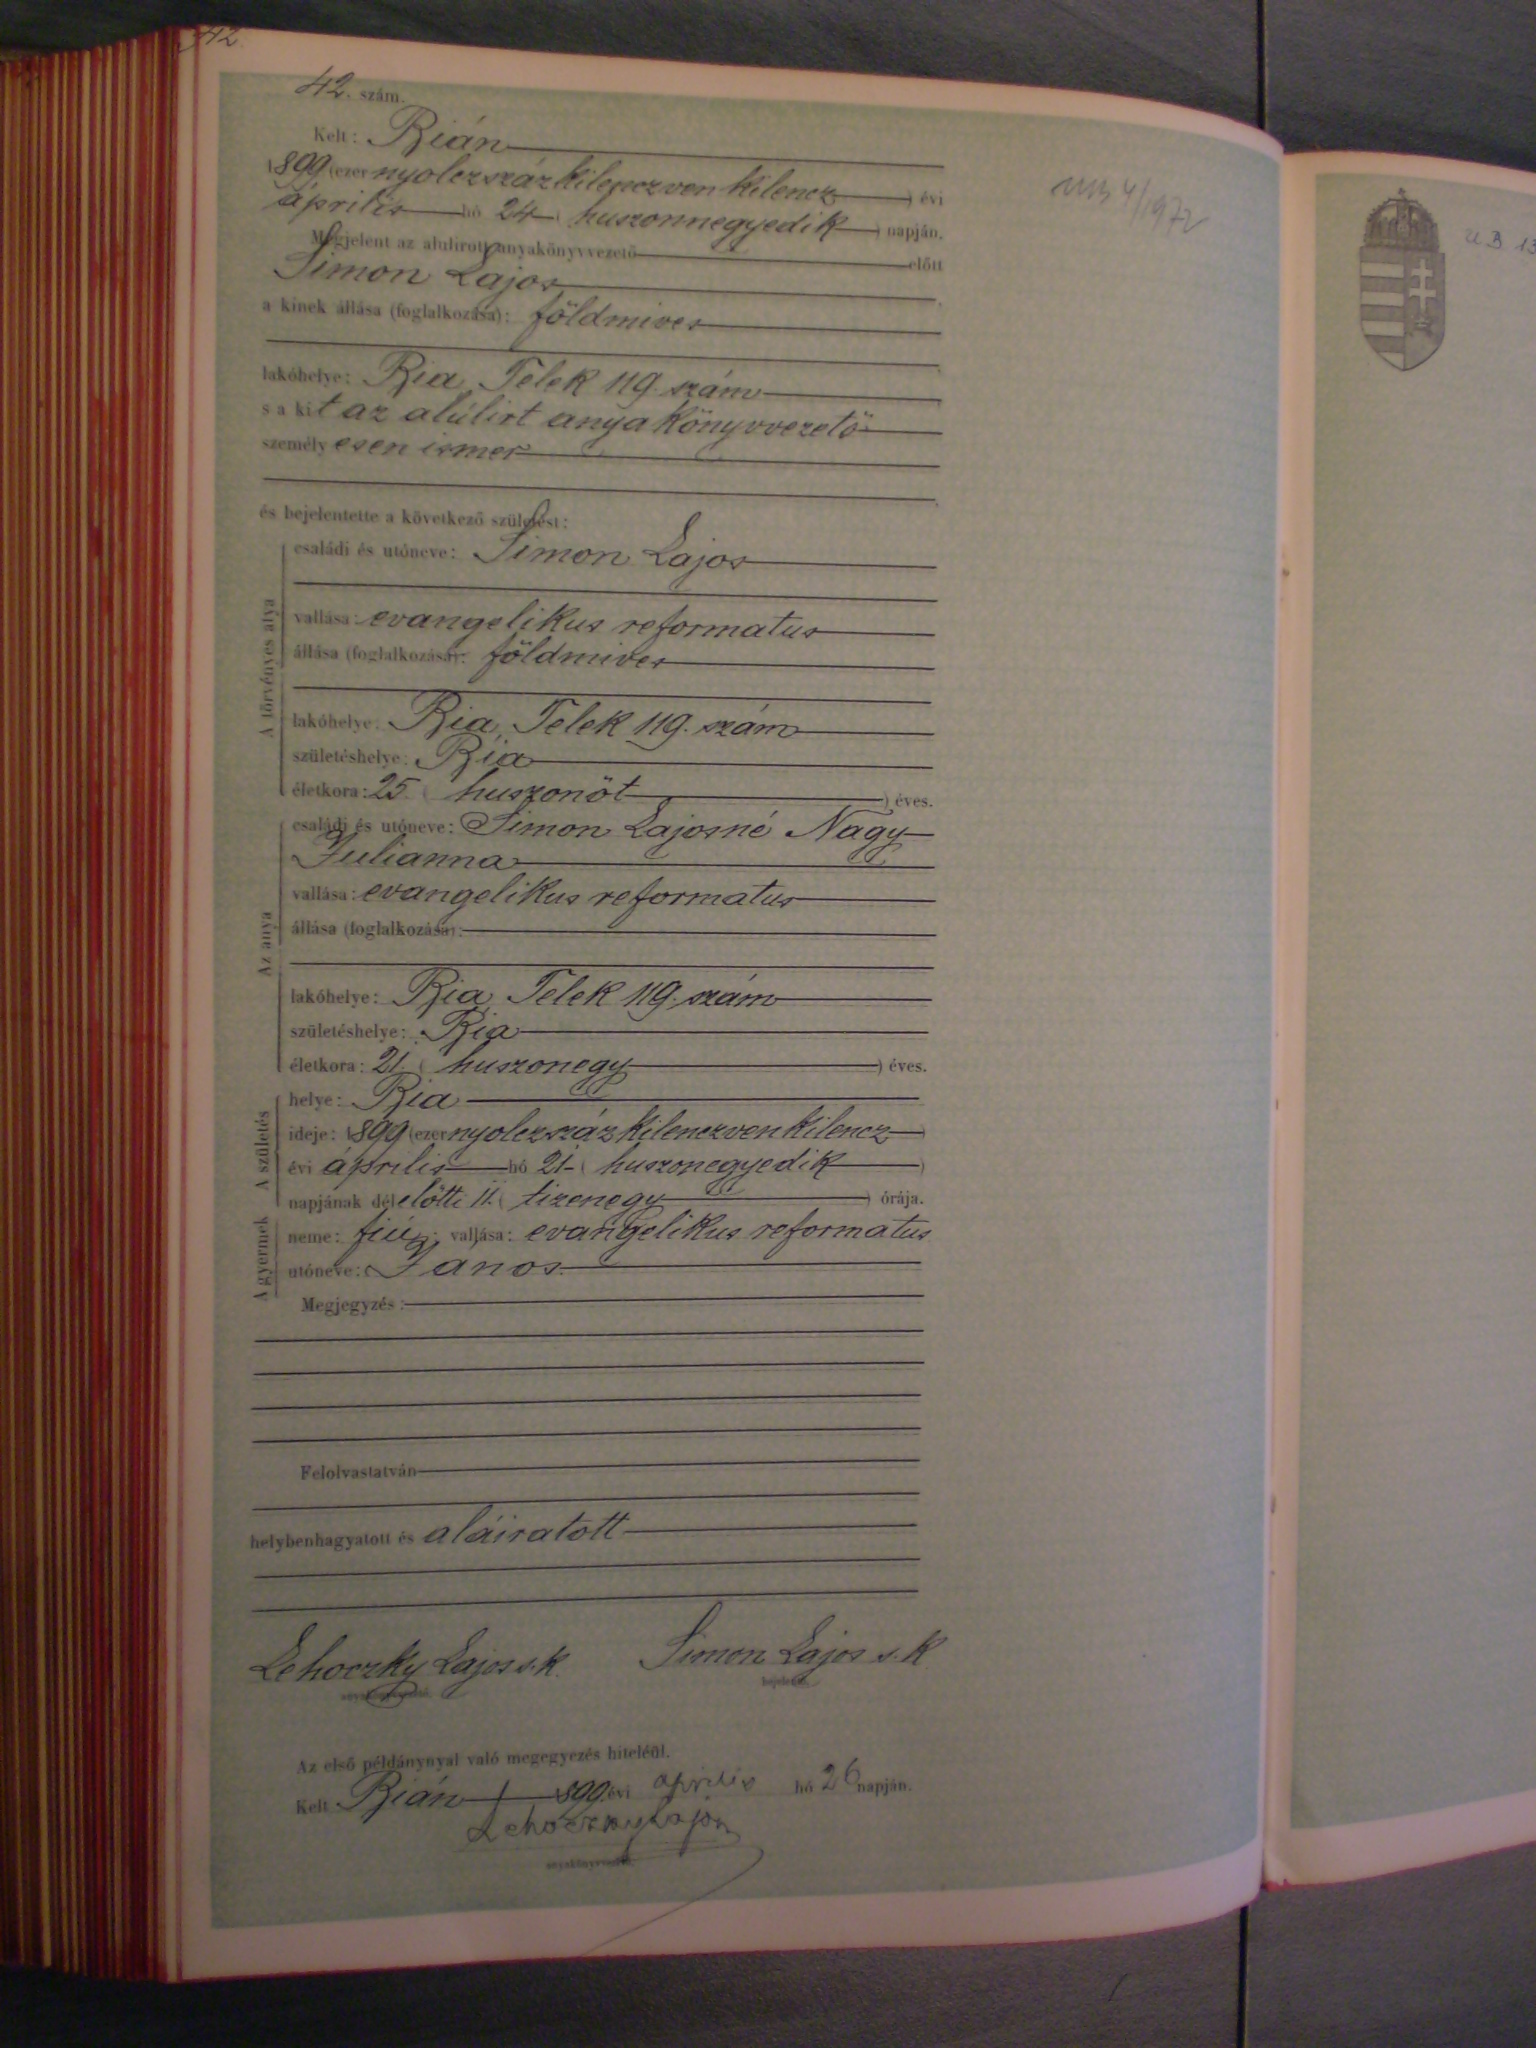 42
42. szám.
Kelt: Bián
1899 (ezer nyolczszázkilenczvenkilencz) évi
április hó 24 (huszonnegyedik) napján.
Megjelent az alulirott anyakönyvvezető előtt
Simon Lajos
a kinek állása (foglalkozása): földmives
lakóhelye: Bia Telek 119. szám
s a kit az alúlirt anyakönyvvezető
személyesen ismer
és bejelentette a következő születést:
A törvényes atya
családi és utóneve: Simon Lajos
vallása: evangelikus reformatus
állása (foglalkozása): földmives
lakóhelye: Bia, Telek 119. szám
születéshelye: Bia
életkora: 25 (huszonöt) éves.
Az anya
családi és utóneve: Simon Lajosné Nagy
Julianna
vallása: evangelikus reformatus
állása (foglalkozása):
lakóhelye: Bia, Telek 119. szám
születéshelye: Bia
életkora: 21. (huszonegy) éves.
A születés
helye: Bia
ideje: 1899 (ezer nyolczszázkilenczvenkilencz)
évi április hó 21 (huszonegyedik)
napjának délelőtti 11. (tizenegy) órája.
A gyermek
neme: fiú; vallása: evangelikus reformatus
utóneve: János.
Megjegyzés:
Felolvastatván
helybenhagyatott és aláiratott
Lehoczky Lajos s. k. Simon Lajos s. k
anyakönyvvezető. bejelentő.
Az első példánynyal való megegyezés hiteléül.
Kelt Bián 1899. évi április hó 26 napján.
Lehoczky Lajos
anyakönyvvezető.
4/1972